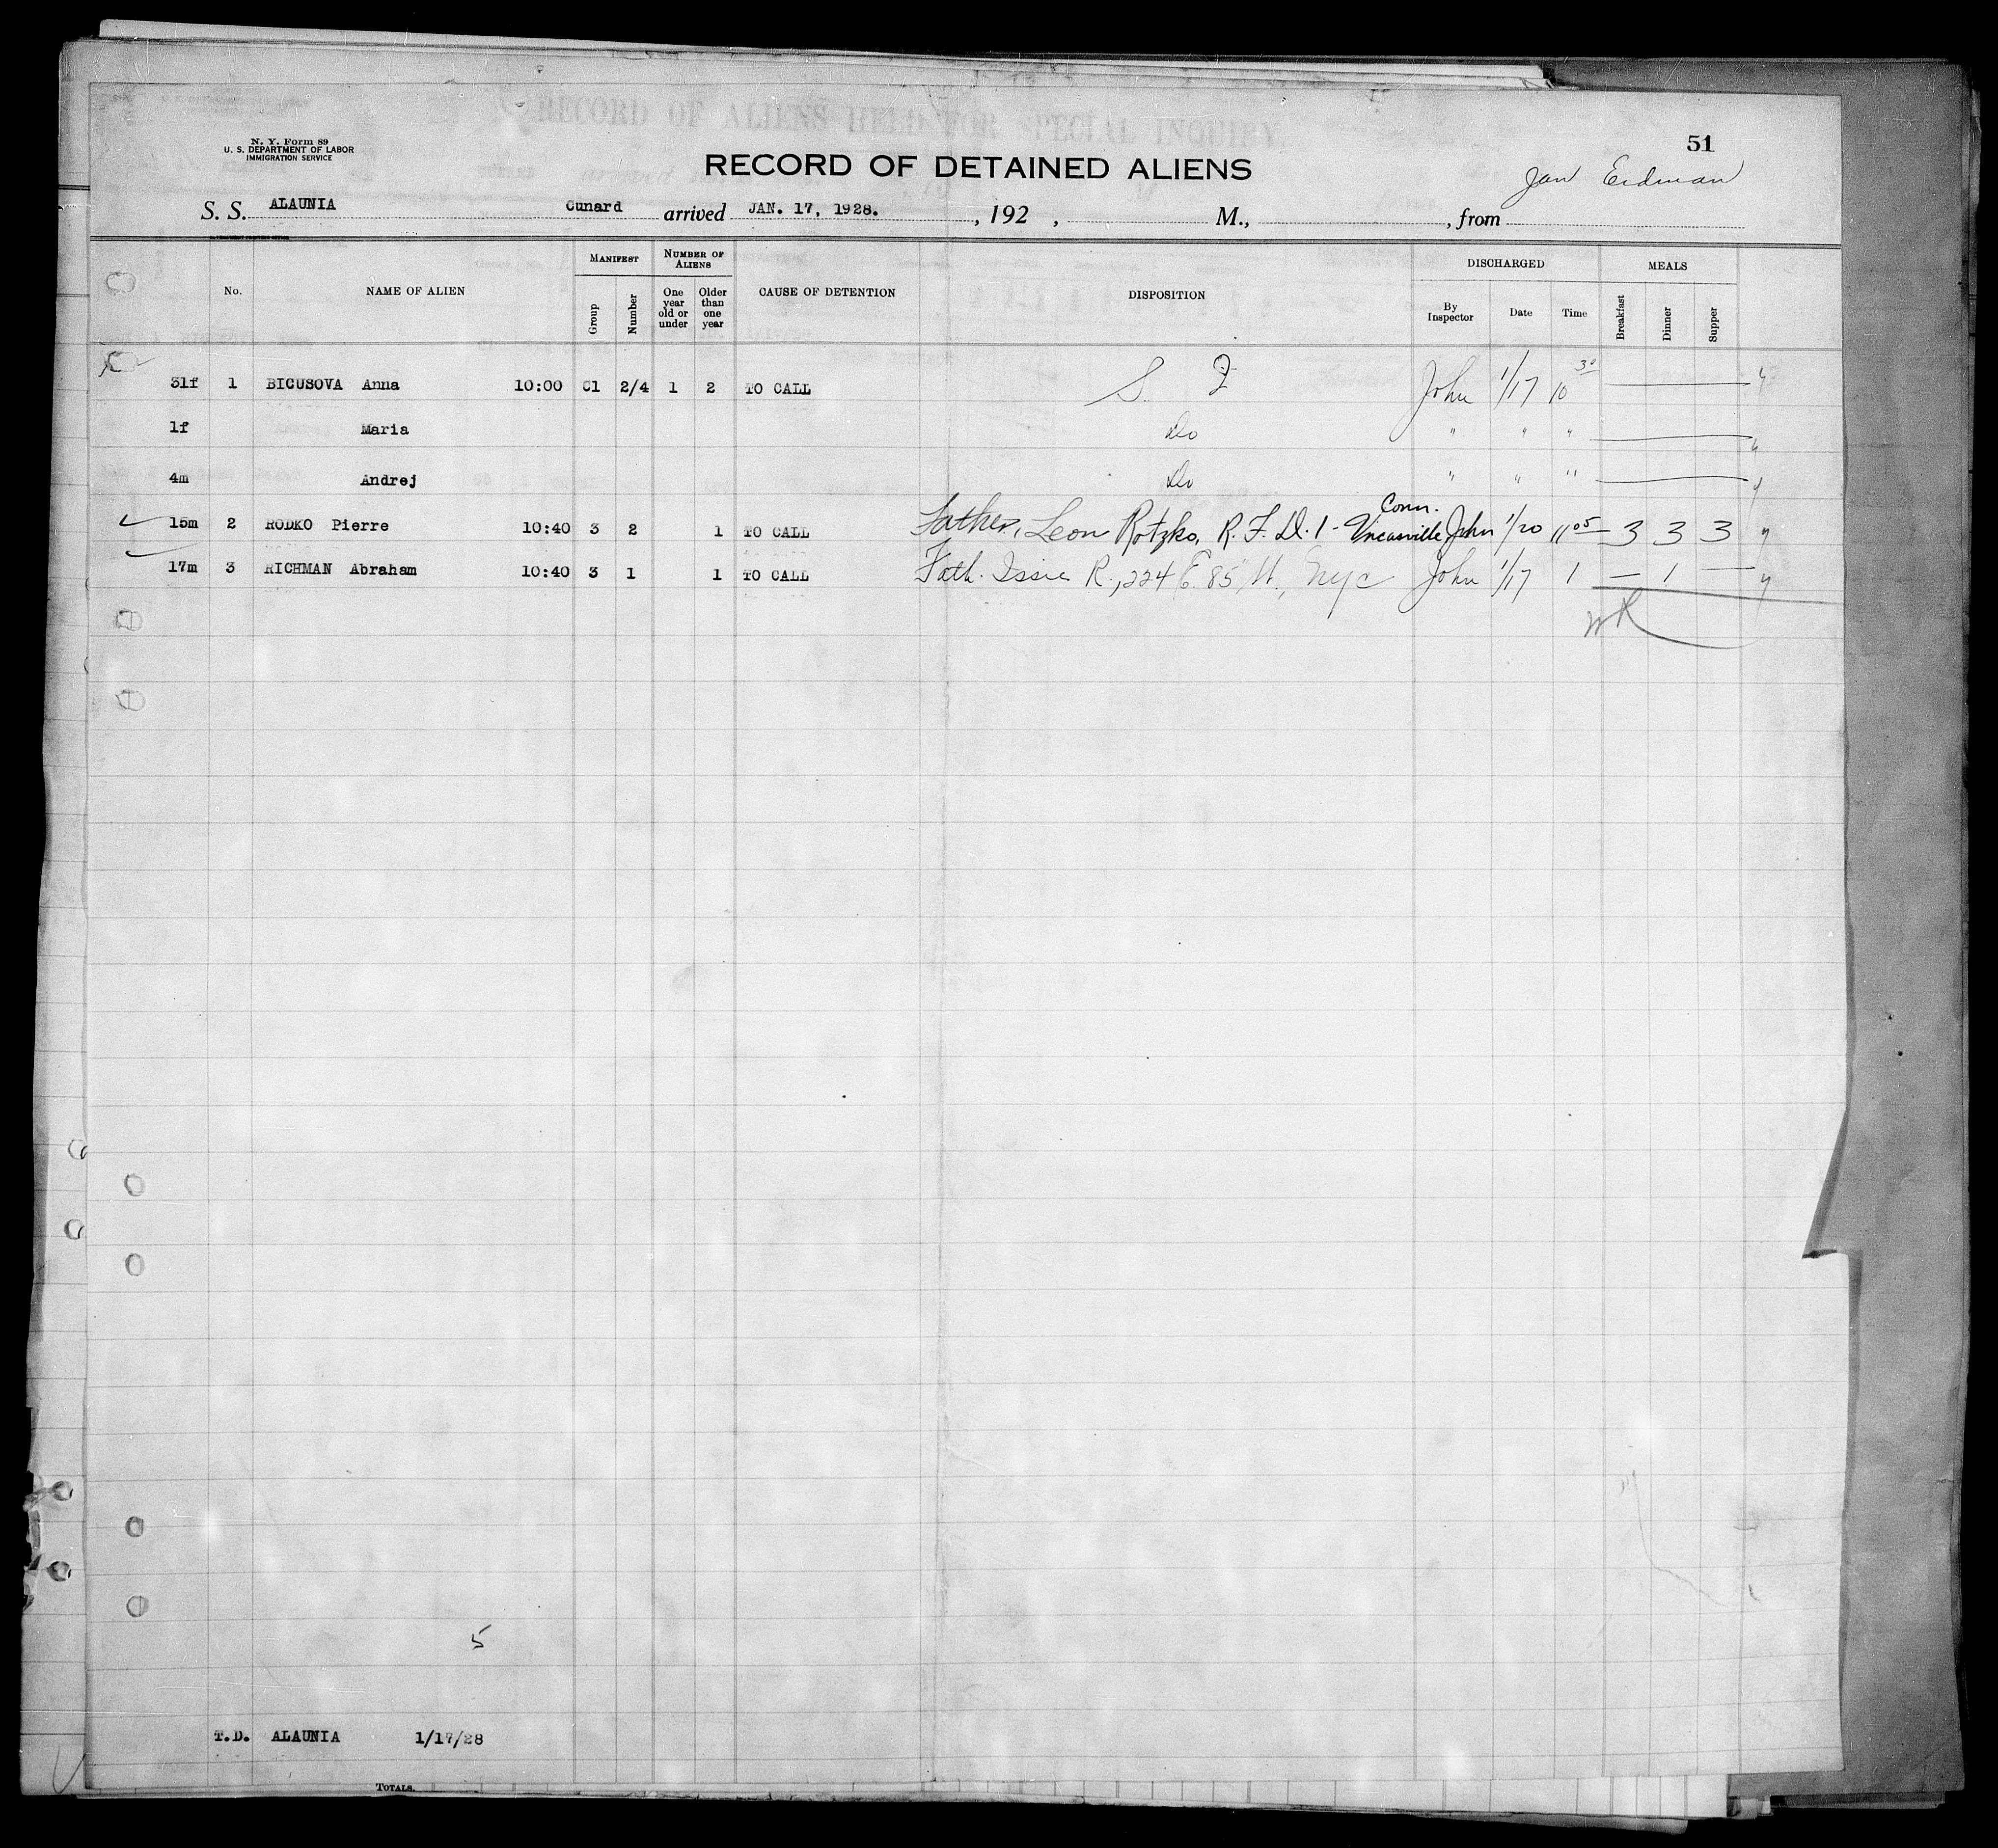 RECORD OF ALIENS HELD FOR SPECIAL INQUIRY
N. Y. Form 89
U. S. DEPARTMENT OF LABOR
IMMIGRATION SERVICE
51
RECORD OF DETAINED ALIENS
Jan Erdman
S. S. ALAUNIA Cunard arrived JAN. 17, 1928. , 192 , M., , from
No. NAME OF ALIEN MANIFEST Group Number NUMBER OF ALIENS One year old or under Older than one year CAUSE OF DETENTION DISPOSITION DISCHARGED By Inspector Date Time MEALS Breakfast Dinner Supper
31f 1 BICUSOVA Anna 10:00 C1 2/4 1 2 TO CALL S. F John 1/17 10 30
1f Maria Do " " "
4m Andrej Do " " "
15m 2 RODKO Pierre 10:40 3 2 1 TO CALL Father, Leon Rotzko, R. F. D. 1 - Uncasville Conn. John 1/20 11 05 3 3 3
17m 3 RICHMAN Abraham 10:40 3 1 1 TO CALL Fath. Issie R., 224 E. 85" St., Nyc John 1/17 1 — 1 —
5
T.D. ALAUNIA 1/17/28
TOTALS.